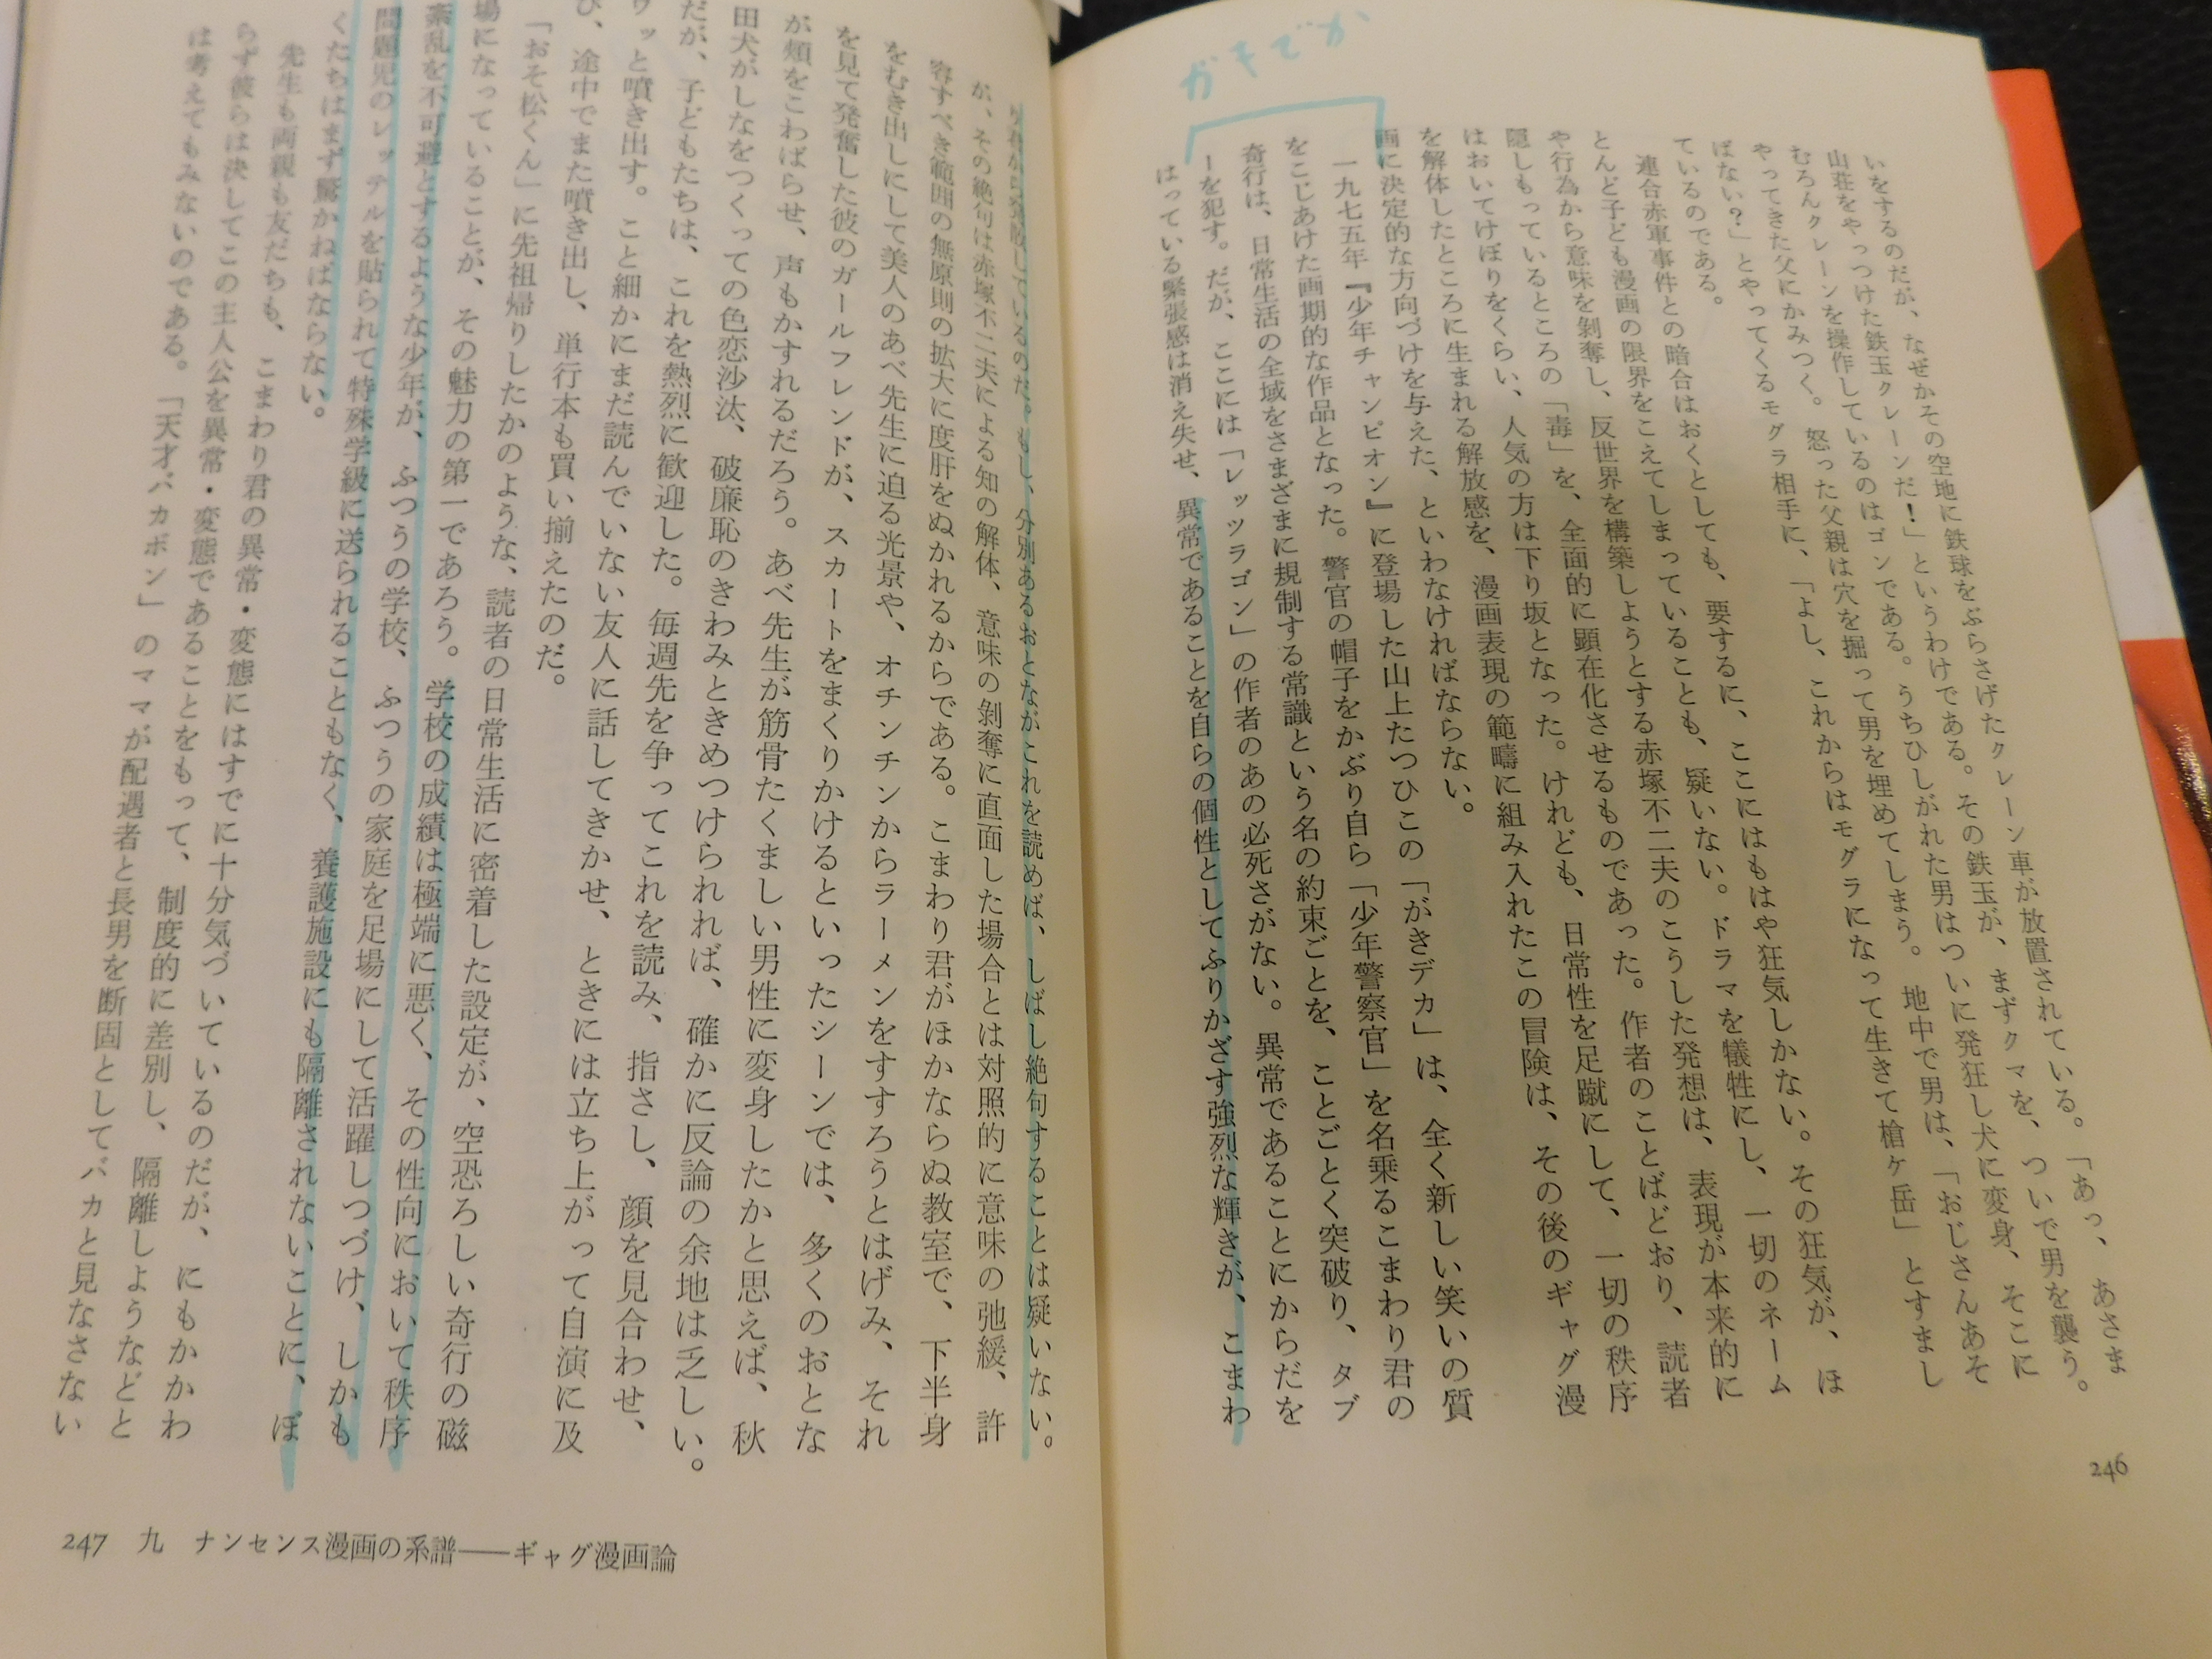 ガキでか
いをするのだが、なぜかその空地に鉄球をぶらさげたクレーン車が放置されている。「あっ、あさま
山荘をやっつけた鉄玉クレーンだ!」というわけである。その鉄玉が、まずクマを、ついで男を襲う。
むろんクレーンを操作しているのはゴンである。うちひしがれた男はついに発狂し犬に変身、そこに
やってきた父にかみつく。怒った父親は穴を掘って男を埋めてしまう。地中で男は、「おじさんあそ
ばない?」とやってくるモグラ相手に、「よし、これからはモグラになって生きて槍ケ岳」とすまし
ているのである。
連合赤軍事件との暗合はおくとしても、要するに、ここにはもはや狂気しかない。その狂気が、ほ
とんど子ども漫画の限界をこえてしまっていることも、疑いない。ドラマを犠牲にし、一切のネーム
や行為から意味を剝奪し、反世界を構築しようとする赤塚不二夫のこうした発想は、表現が本来的に
隠しもっているところの「毒」を、全面的に顕在化させるものであった。作者のことばどおり、読者
はおいてけぼりをくらい、人気の方は下り坂となった。けれども、日常性を足蹴にして、一切の秩序
を解体したところに生まれる解放感を、漫画表現の範疇に組み入れたこの冒険は、その後のギャグ漫
画に決定的な方向づけを与えた、といわなければならない。
一九七五年『少年チャンピオン』に登場した山上たつひこの「がきデカ」は、全く新しい笑いの質
をこじあけた画期的な作品となった。警官の帽子をかぶり自ら「少年警察官」を名乗るこまわり君の
奇行は、日常生活の全域をさまざまに規制する常識という名の約束ごとを、ことごとく突破り、タブ
ーを犯す。だが、ここには「レッツラゴン」の作者のあの必死さがない。異常であることにからだを
はっている緊張感は消え失せ、異常であることを自らの個性としてふりかざす強烈な輝きが、こまわ
246
り君から発散しているのだ。もし、分別あるおとながこれを読めば、しばし絶句することは疑いない。
が、その絶句は赤塚不二夫による知の解体、意味の剝奪に直面した場合とは対照的に意味の弛緩、許
容すべき範囲の無原則の拡大に度肝をぬかれるからである。こまわり君がほかならぬ教室で、下半身
をむき出しにして美人のあべ先生に迫る光景や、オチンチンからラーメンをすすろうとはげみ、それ
を見て発奮した彼のガールフレンドが、スカートをまくりかけるといったシーンでは、多くのおとな
が頰をこわばらせ、声もかすれるだろう。あべ先生が筋骨たくましい男性に変身したかと思えば、秋
田犬がしなをつくっての色恋沙汰、破廉恥のきわみときめつけられれば、確かに反論の余地は乏しい。
だが、子どもたちは、これを熱烈に歓迎した。毎週先を争ってこれを読み、指さし、顔を見合わせ、
ワッと噴き出す。こと細かにまだ読んでいない友人に話してきかせ、ときには立ち上がって自演に及
び、途中でまた噴き出し、単行本も買い揃えたのだ。
「おそ松くん」に先祖帰りしたかのような、読者の日常生活に密着した設定が、空恐ろしい奇行の磁
場になっていることが、その魅力の第一であろう。学校の成績は極端に悪く、その性向において秩序
紊乱を不可避とするような少年が、ふつうの学校、ふつうの家庭を足場にして活躍しつづけ、しかも
問題児のレッテルを貼られて特殊学級に送られることもなく、養護施設にも隔離されないことに、ぼ
くたちはまず驚かねばならない。
先生も両親も友だちも、こまわり君の異常・変態にはすでに十分気づいているのだが、にもかかわ
らず彼らは決してこの主人公を異常・変態であることをもって、制度的に差別し、隔離しようなどと
は考えてもみないのである。「天才バカボン」のママが配遇者と長男を断固としてバカと見なさない
247 九 ナンセンス漫画の系譜──ギャグ漫画論